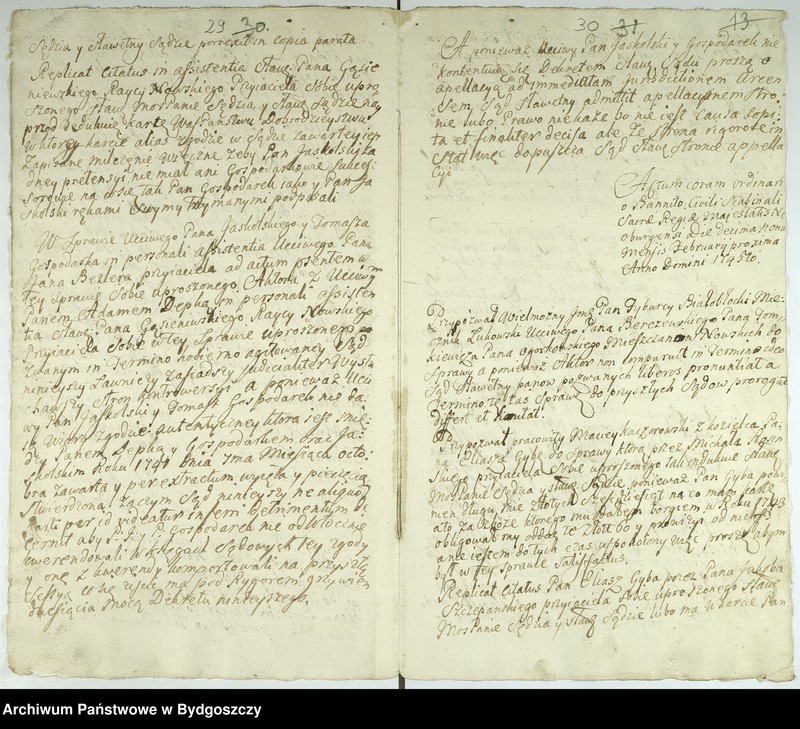 29 30.
Sędzia y Sławetny Sądzie porrexit in copia parata
Replicat Citatus in assistentia Sławe: Pana Gąsie
niewskiego Raycy Nowskiego Przyjaciela Sobie upro
szonego Sława: Mośpanie Sędzia y Sławe: Sądzie na
przód dedukuię kartę WasPaństwu Dobrodzieystwu
w ktorey karcie alias zgodzie w Sądzie zawartey iest
Zapisane milczenie wieczne żeby Pan Jaskolski ża
dney pretensyi nie miał ani Gospodarkowie Sukces
sorowie na co się tak Pan Gospodarek iako y Pan Ja
skolski rękami swymi trzymanymi podpisali
W Sprawie Ucciwego Pana Jaskolskiego y Tomasza
Gospodarka in personali assistentia Ucciwego Pana
Jana Bezlera przyiaciela ad actum psentem w
tey Sprawie Sobie uproszonego Aktora Z Ucciwym
Panem Adamem Depką in personali assisten
tia Sławe: Pana Gąsieniewskiego Raycy Nowskiego
Przyiaciela Sobie w tey Sprawie uproszonego po
zwanym in Termino hodierno agitowaney Sąd
ninieyszy Ławniczy Zasiadszy Judicialiter Wysłu
chawszy Stron kontrowersyi a ponieważ Ucci
wy Pan Jaskolski y Tomasz Gospodarek nie da
ią Wiary zgodzie autentyczney ktora iest mię
dzy Panem Depką y Gospodarkiem oraz Ja
skolskim Roku 1741 dnia 7ma Miesiąca octo:
bra zawarta y per extractum wyięta y pieczęcią
Stwierdzona Zaczym Sąd ninieyszy ne aliquod
Parti per id videatur inferri detrimentum de
cernit aby P. J. y P. Gospodarek nie odwłocznie
kwerendowali w Xięgach Sądowych tey zgody
y onę z kwerendy komportowali na przyszłą
Sessyą co się ziścić ma pod Rygorem grzywien
dziesiącia mocą Dekretu ninieyszego.
30 31 43
A ponieważ Ucciwy Pan Jaskolski y Gospodarek nie
kontentuią się Dekretem Sławe: Sądu proszą o
apellacyą ad immediatam Jurisdictionem Arcen
sem, Sąd Sławetny admittit apellacyą nem Stro:
nie lubo Prawo nie każe bo nie iest Causa sopi
ta et finaliter decisa ale że Strona rigorose in
stat więc dopuszcza Sąd Sławe: Stronie appella
cyi
Actum coram ordinari
o Bannito Civili Scabinali
Sacræ Regiæ Majestatis N
oburgensi Die decima nona
Mensis February proxima
Anno Domini 1745to.
Przypozwał Wielmożny Jmć Pan Tyburcy Białobłocki Mie
cznik Łukowski Ucciwego Pana Berczewskiego Pana Tom
kiewicza Pana Ogorkoskiego Mieszczanów Nowskich do
Sprawy a ponieważ Aktor non Comparuit in Termino ideo
Sąd Sławetny panow pozwanych liberos pronuntiat a
Termino, też zaś Sprawę do przyszłych Sądow prorogat
differt et limitat.
Przypozwał pracowity Maciey Kaczorowski z Kozielca Pa
na Eliasz Gybę do Sprawy ktorą przez Michała Stęsin
skiego przyiaciela Sobie uproszonego tali indukuie Sławe:
Mospanie Sędzia y Sławe: Sądzie ponieważ Pan Gyba powi
nien długu, mie złotych Sześdziesiąt na co mam kartę
a to za zboże ktorego mu dałem borgiem w Roku 1743
obligował mi oddać te Złotë 60 y prowizyi od nich
a nie iestem do tych czas uspokoiony więc proszę abym
był w tey Sprawie Satisfactus.
Replicat Citatus Pan Eliasz Gyba przez Pana Jakuba
Szczepańskiego przyiaciela Sobie uproszonego Sławe:
Mospanie Sędzia y Sławe: Sądzie lubo ma w karcie Pan
Archiwum Państwowe w Bydgoszczy